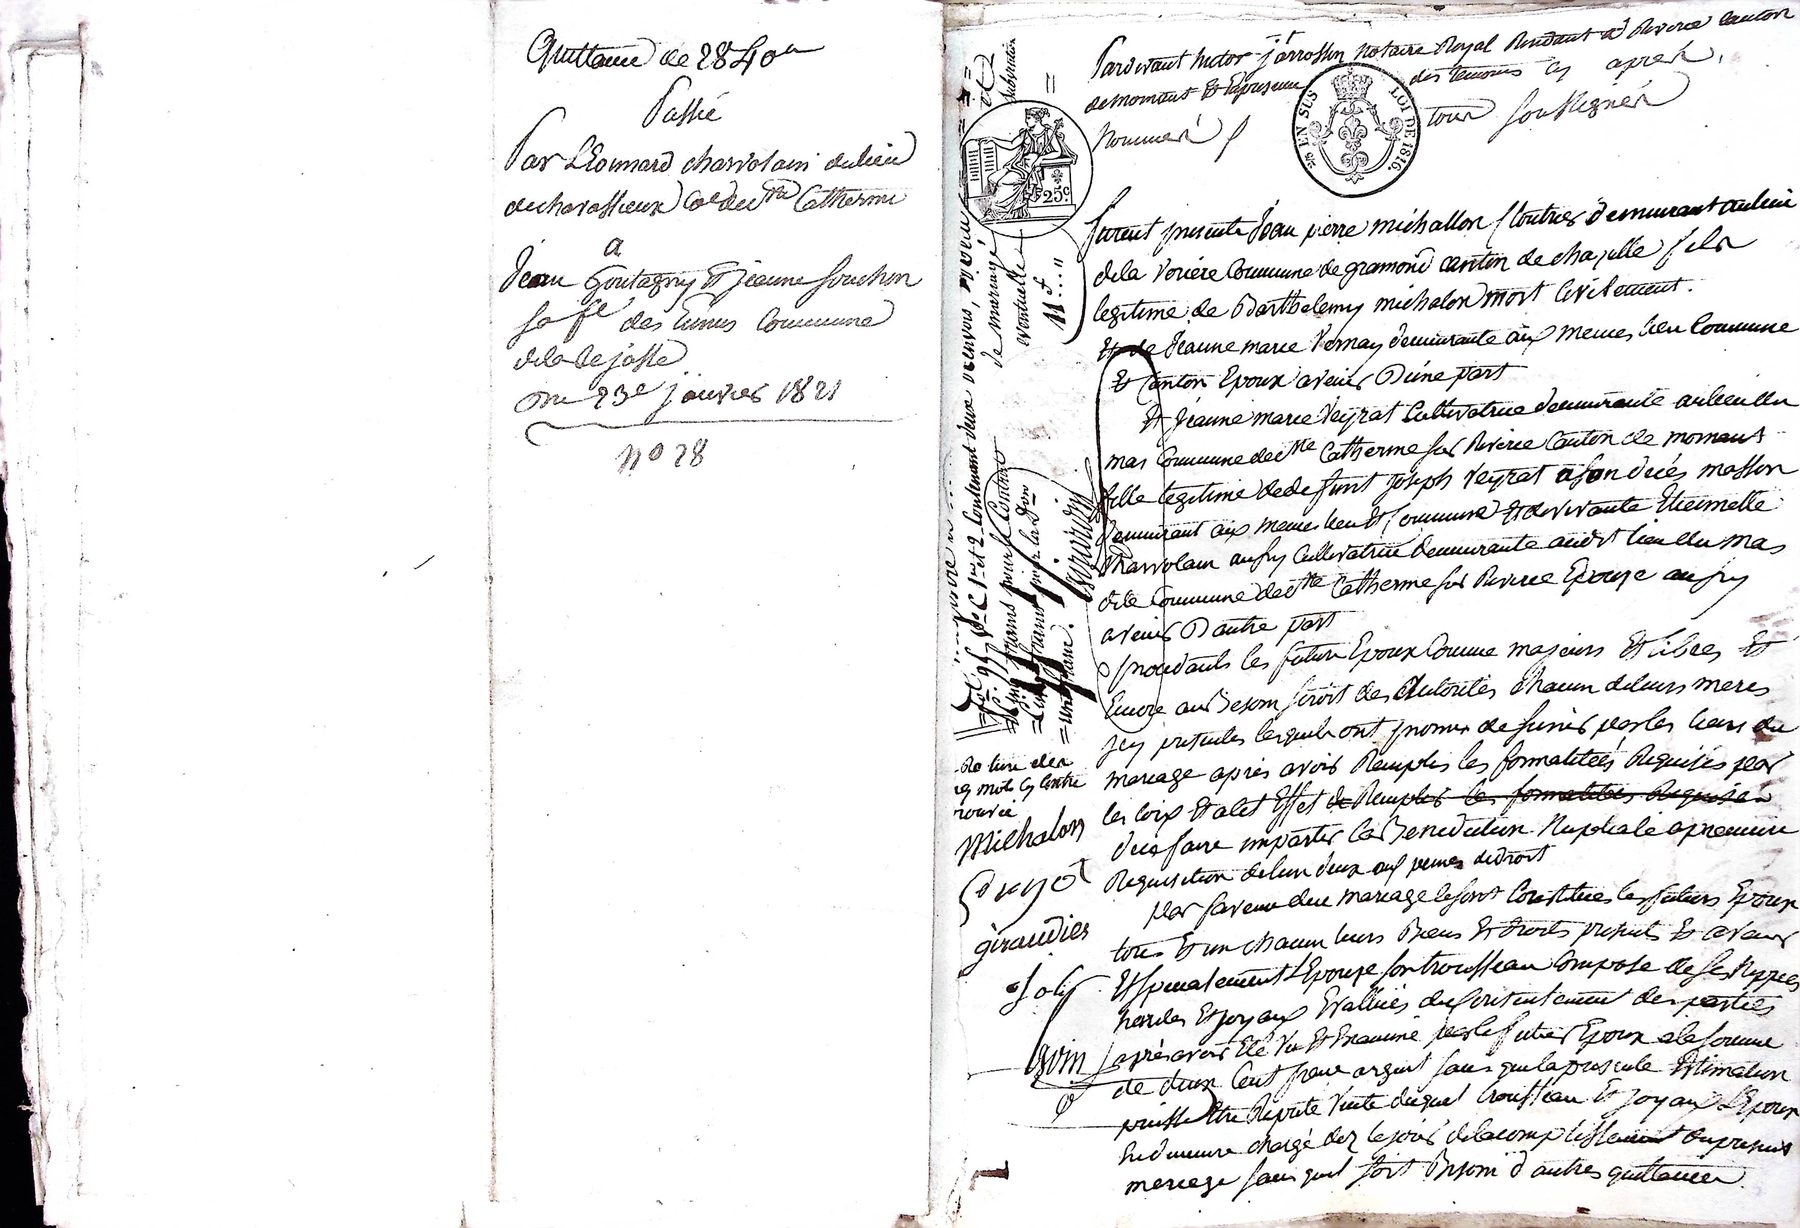 Quittance de 284
Passée
Par Léonnard charvolain du lieu
de charassieux Cne de Ste Catherine
a
Jean Goutagny et jeanne souchon
sa fe des Commune
de la Rejasse
Du 23e janvier 1821
no 28
Pardevant victor jarrosson notaire Royal Residant a Riverie canton
de mornant Et En presence des temoins cy apres
nommés tous soussignés
EN SUS LOI DE 1816.
25c.
furent presents Jean pierre michallon demeurant au lieu
de la Commune de gramond canton de chazelle fils
legitime de Barthelemy michalon mort Civilement.
Et de Jeanne marie Vernay demeurante aux memes lieu Commune
Et Canton Epoux avenir D'une part
Et jeanne marie Veyrat Cultivatrice demeurante au lieu du
mas Commune de Ste Catherine sur Riverie Canton de mornant
fille legitime de defunt joseph Veyrat a son décès masson
demeurant aux memes lieu Et Commune Et de vivante Etiennette
charvolain aussy Cultivatrice demeurante audit lieu du mas
dite Commune de Ste Catherine sur Riverie Epouse aussy
avenir D'autre part
procedants les futurs Epoux Comme majeurs Et libres Et
Encore au Besoin soit des autorités chacun de leurs meres
icy presentes lesquels ont promis de s'unir par les liens du
mariage après avoir Remplis les formalitées Requises par
les loix Et a cet Effet de Remplir les formalitées Requises
de se faire impartir la Benediction Nuptiale a premiere
Requisition de l'un d'eux aux peines de droit
par faveur du mariage se sont Constitués les futurs Epoux
tous Et un chacun leurs Biens Et droits presents Et avenir
Et specialement l'Epouse son trousseau Composé de ses Nippes
hardes Et joyaux Evallués du Consentement des parties
après avoir Eté vu Et Examiné par le futur Epoux a la somme
de deux Cent francs argent sans que la presente Estimation
puisse Etre Reputé Vente duquel trousseau Et joyaux l'Epoux
En demeure chargé dez le jour de l'accomplissement du present
mariage sans quil soit Besoin d'autres quittances
de mariage
eventuelle
11f
Cinq francs pour le Contrat
= un franc.
cy contre
Michalon
giraudier
Joly